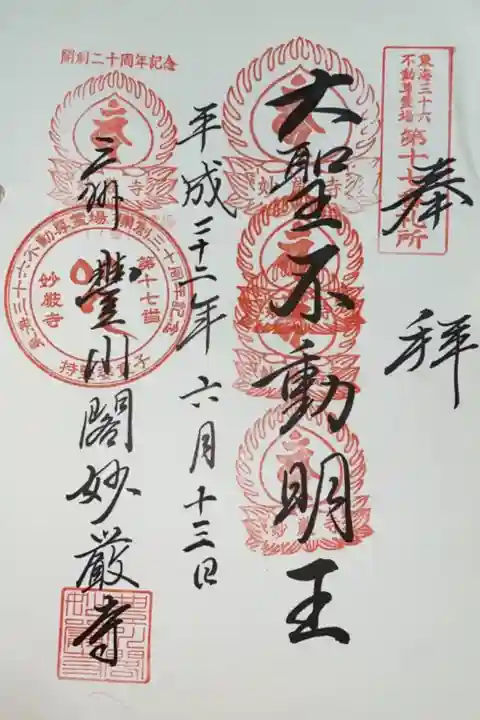 東海三十六
不動尊霊場
第十七番札所
奉拝
大聖不動明王
妙厳寺
平成二十二年六月十三日
開創二十周年記念
三州豊川閣妙厳寺
東海三十六不動尊霊場 開創三十周年記念
第十七番
妙厳寺